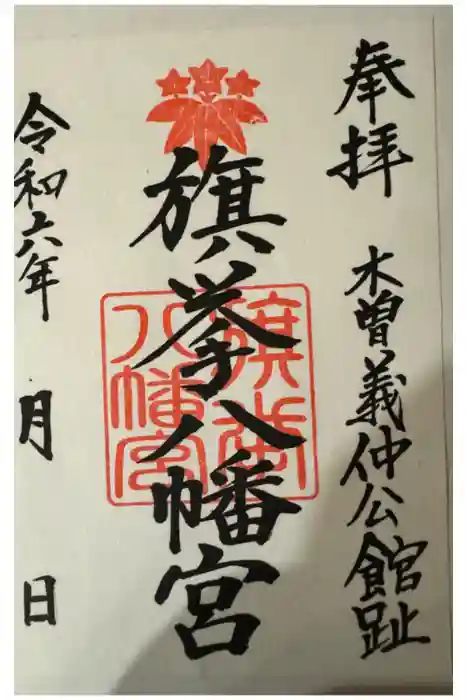 奉拝
木曽義仲公館趾
旗挙八幡宮
旗挙
八幡宮
令和六年 月 日